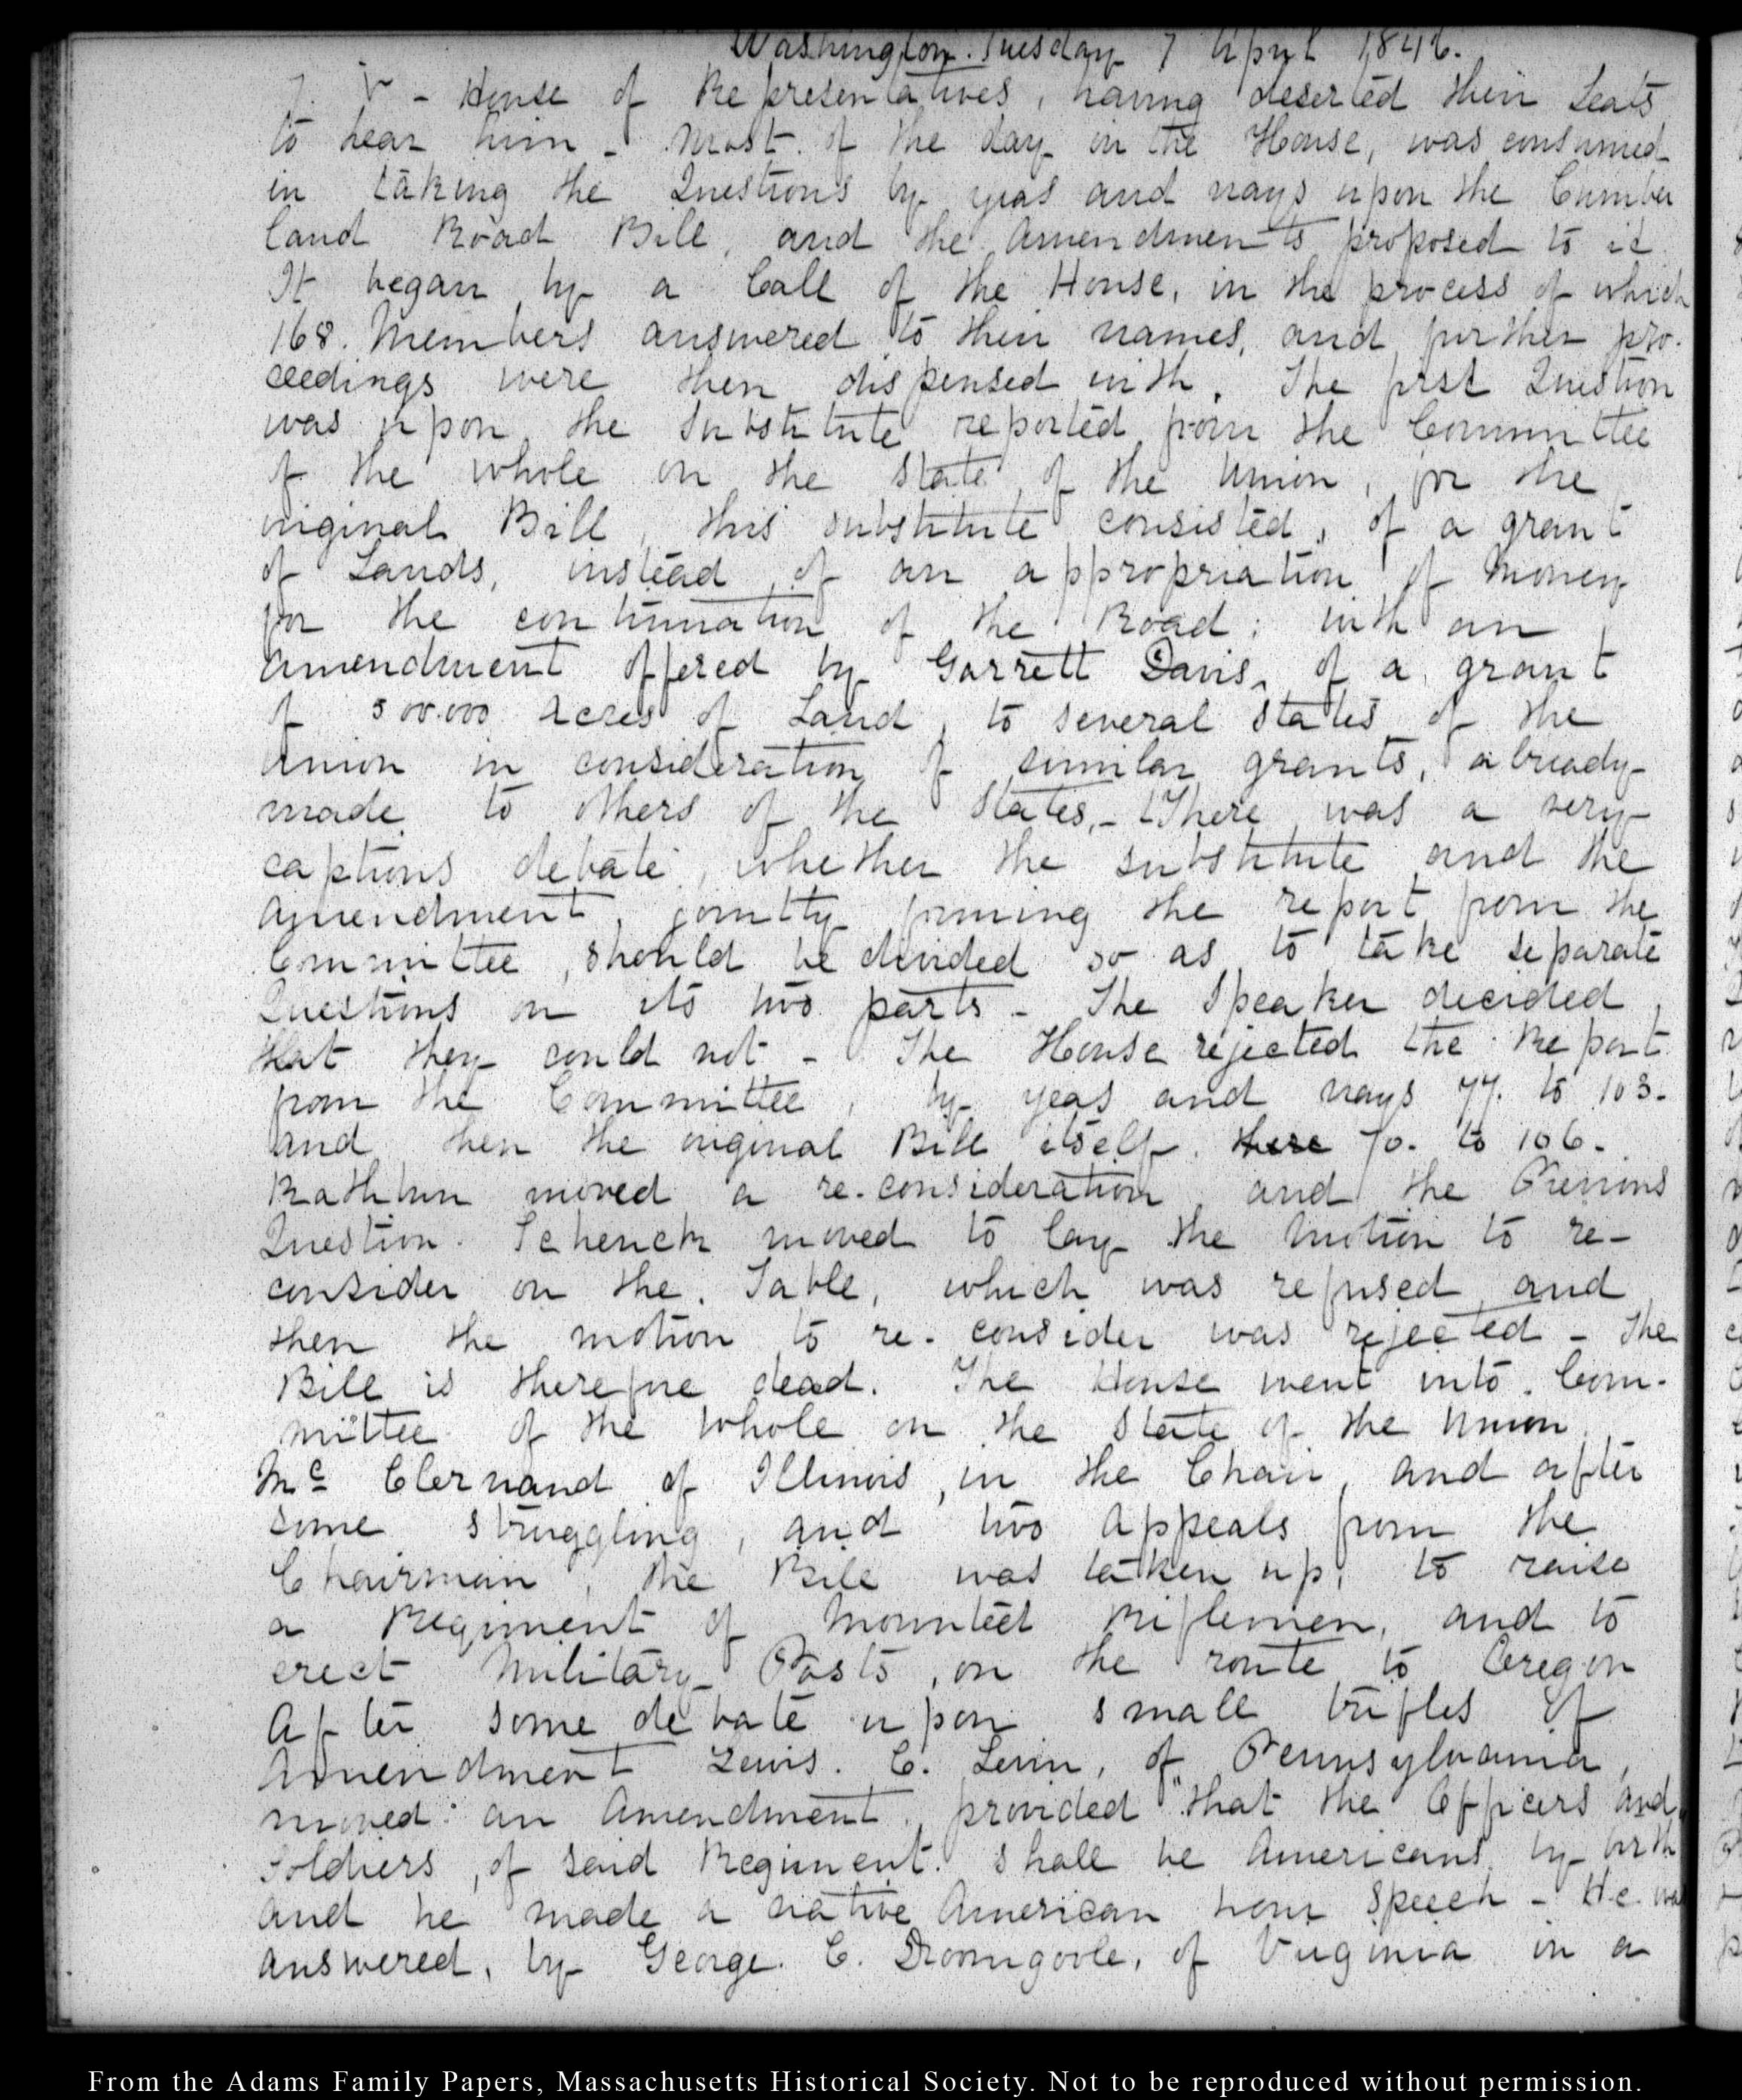 Washington. Tuesday 7 April 1846.
7. V - House of Representatives, having deserted their Seats
to hear him - Most of the day in the House, was consumed
in taking the Questions by yeas and nays upon the Cumber
land Road Bill, and the Amendments proposed to it
It began by a Call of the House, in the process of which
168. Members answered to their names, and further pro-
ceedings were then dispensed with. The first Question
was upon the Substitute reported from the Committee
of the whole on the State of the Union, for the
original Bill, this substitute consisted, of a grant
of Lands, instead of an appropriation of Money
for the continuation of the Road: with an
amendment offered by Garrett Davis, of a grant
of 500.000 Acres of Land, to several States of the
Union in consideration of similar grants, already
made to others of the States, - There was a very
captious debate, whether the substitute and the
amendment, jointly forming the report from the
Committee, should be divided so as to take separate
Questions on its two parts - The Speaker decided
that they could not - The House rejected the Report
from the Committee, by yeas and nays 77. to 103.
and then the original Bill itself. 70. to 106.
Rathbun moved a re-consideration and the Previous
Question. Schenck moved to lay the Motion to re-
consider on the Table, which was refused and
then the motion to re-consider was rejected - The
Bill is therefore dead. The House went into Com-
mittee of the Whole on the State of the Union
Mc Clernand of Illinois, in the Chair, and after
some struggling, and two Appeals from the
Chairman, the Bill was taken up, to raise
a Regiment of Mounted Riflemen, and to
erect Military Posts, on the route to Oregon
After some debate upon small trifles of
Amendment Lewis. C. Levin, of Pennsylvania,
moved an Amendment, provided "that the Officers and
Soldiers, of said Regiment shall be Americans by birth
and he made a native American hour Speech - He was
answered, by George. C. Dromgoole, of Virginia in a
From the Adams Family Papers, Massachusetts Historical Society. Not to be reproduced without permission.